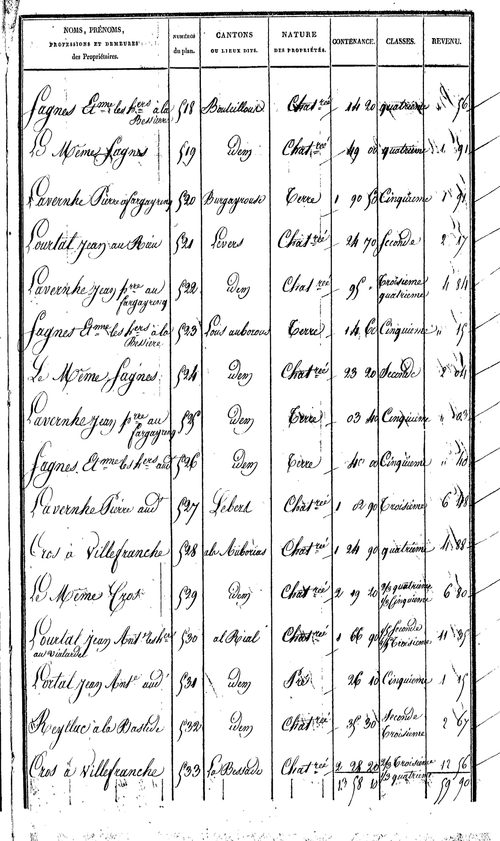 NOMS, PRÉNOMS, PROFESSIONS ET DEMEURES des Propriétaires. NUMÉROS du plan. CANTONS OU LIEUX DITS. NATURE DES PROPRIÉTÉS. CONTENANCE. CLASSES. REVENU.
Fagnes Etme les hers à la Bessiere 518 Chatrée 14 20 quatrieme 56
Le Même Fagnes 519 idem Chatrée 49 00 quatrieme 1 91
Lavernhe Pierre a fargayreng 520 Burgayrouse Terre 1 90 50 Cinquieme 1 91
Jean au Rau 521 Levers Chatrée 24 70 Seconde 2 17
Lavernhe Jean pre au fargayreng 522 idem Chatrée 95 " Troisieme quatrieme 4 34
Fagnes Etme les hers à la Bessiere 523 Terre 14 60 Cinquieme " 15
Le Même Fagnes 524 idem Chatrée 23 20 Seconde 2 04
Lavernhe Jean pre au fargayreng 525 idem Terre 03 40 Cinquieme " 03
Fagnes Etme les hers audt 526 idem Terre 40 00 Cinquieme " 40
Lavernhe Pierre audt 527 Lébert Chatrée 1 02 90 Troisieme 6 48
Cros à Villefranche 528 Chatrée 1 24 90 quatrieme 4 88
Le Même Cros 529 idem Chatrée 2 19 20 quatrieme Cinquieme 6 80
Jean Ant les hers au Viala 530 al Rial Chatrée 1 66 90 Seconde Troisieme 11 35
Portal Jean Ante audt 531 idem Pré 26 10 Cinquieme 1 15
à la Bastide 532 idem Chatrée 35 30 Seconde Troisieme 2 67
Cros à Villefranche 533 La Bessade Chatrée 2 28 20 2/3 Troisieme 1/3 quatrieme 12 56
13 58 10 59 90